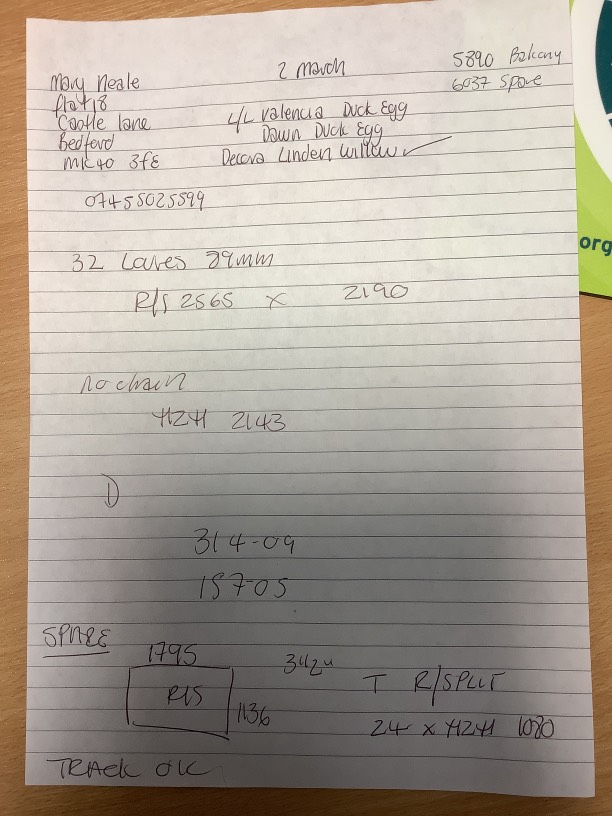 2 March
5890 Balcony
6037 Spare
Mary Neale
flat 18
Castle lane
Bedford
MK40 3fE
L/L Valencia Duck Egg
Dawn Duck Egg
Decora Linden Willow ✓
07455025599
32 Laves 89mm
R/S 2565 x 2190
no chain
HZH 2143
D
314-09
157-05
SPARE
1795
R/S
1136
342
T R/SPLIT
24 x HZH 1080
TRACK OK
org